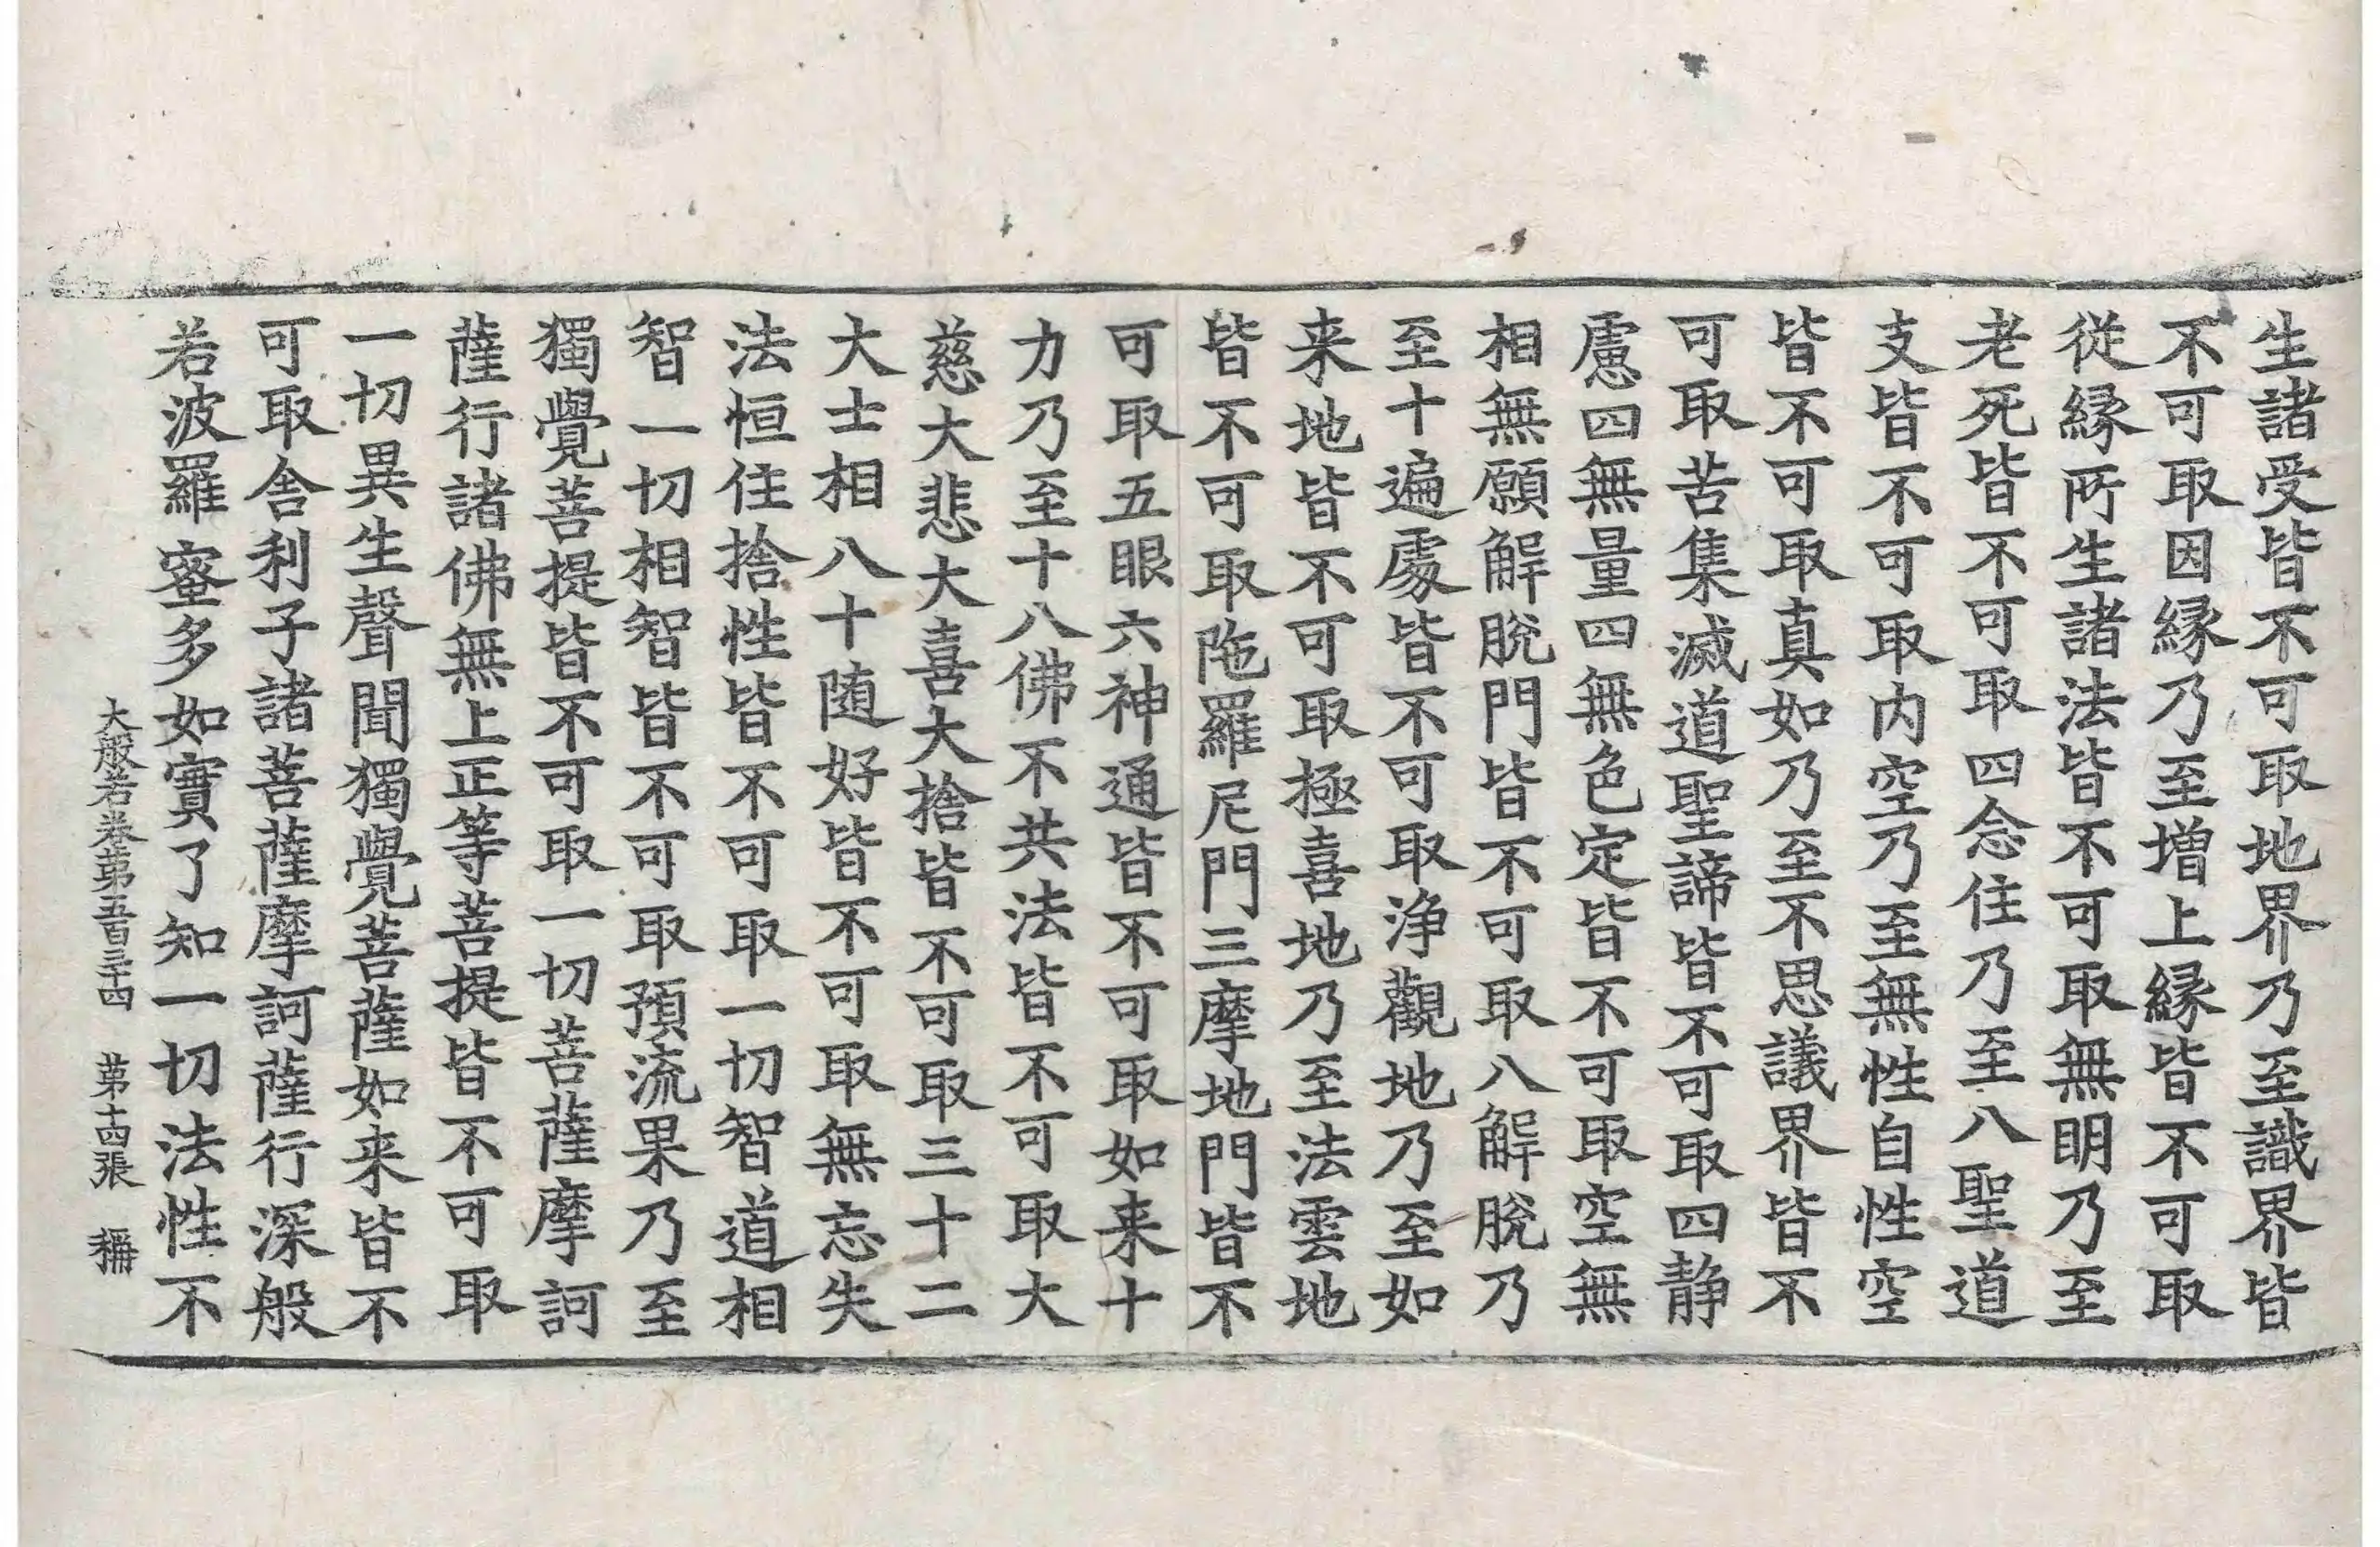 生諸受皆不可取地界乃至識界皆
不可取因縁乃至增上縁皆不可取
從縁所生諸法皆不可取無明乃至
老死皆不可取四念住乃至八聖道
支皆不可取内空乃至無性自性空
皆不可取真如乃至不思議界皆不
可取苦集滅道聖諦皆不可取四静
慮四無量四無色定皆不可取空無
相無願解脫門皆不可取八解脫乃
至十遍處皆不可取浄觀地乃至如
来地皆不可取極喜地乃至法雲地
皆不可取陁羅尼門三摩地門皆不
可取五眼六神通皆不可取如来十
力乃至十八佛不共法皆不可取大
慈大悲大喜大捨皆不可取三十二
大士相八十随好皆不可取無忘失
法恒住捨性皆不可取一切智道相
智一切相智皆不可取預流果乃至
獨覺菩提皆不可取一切菩薩摩訶
薩行諸佛無上正等菩提皆不可取
一切異生聲聞獨覺菩薩如来皆不
可取舎利子諸菩薩摩訶薩行深般
若波羅蜜多如實了知一切法性不
大般若卷第五百三十四 第十四張